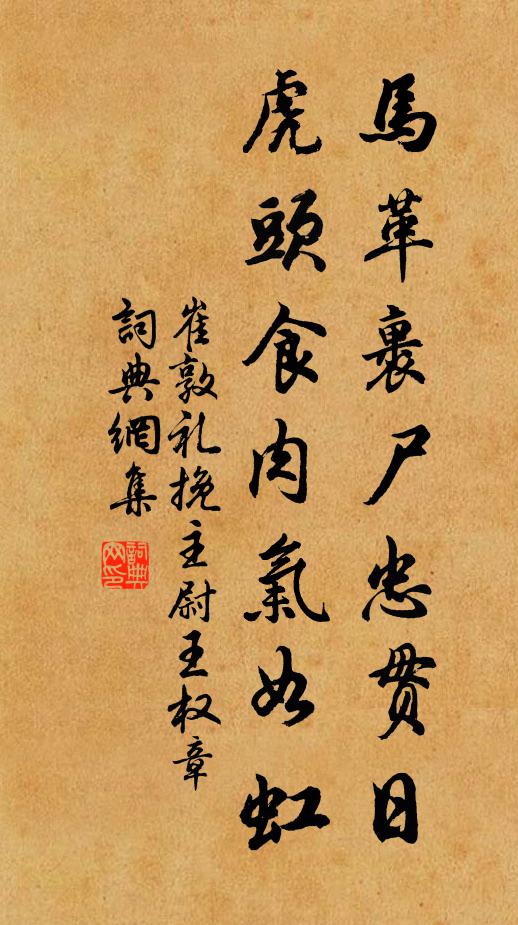 馬革裹尸忠貫日
虎頭食肉氣如虹
崔敦礼挽主尉王权章
詞典網集
詞典网印